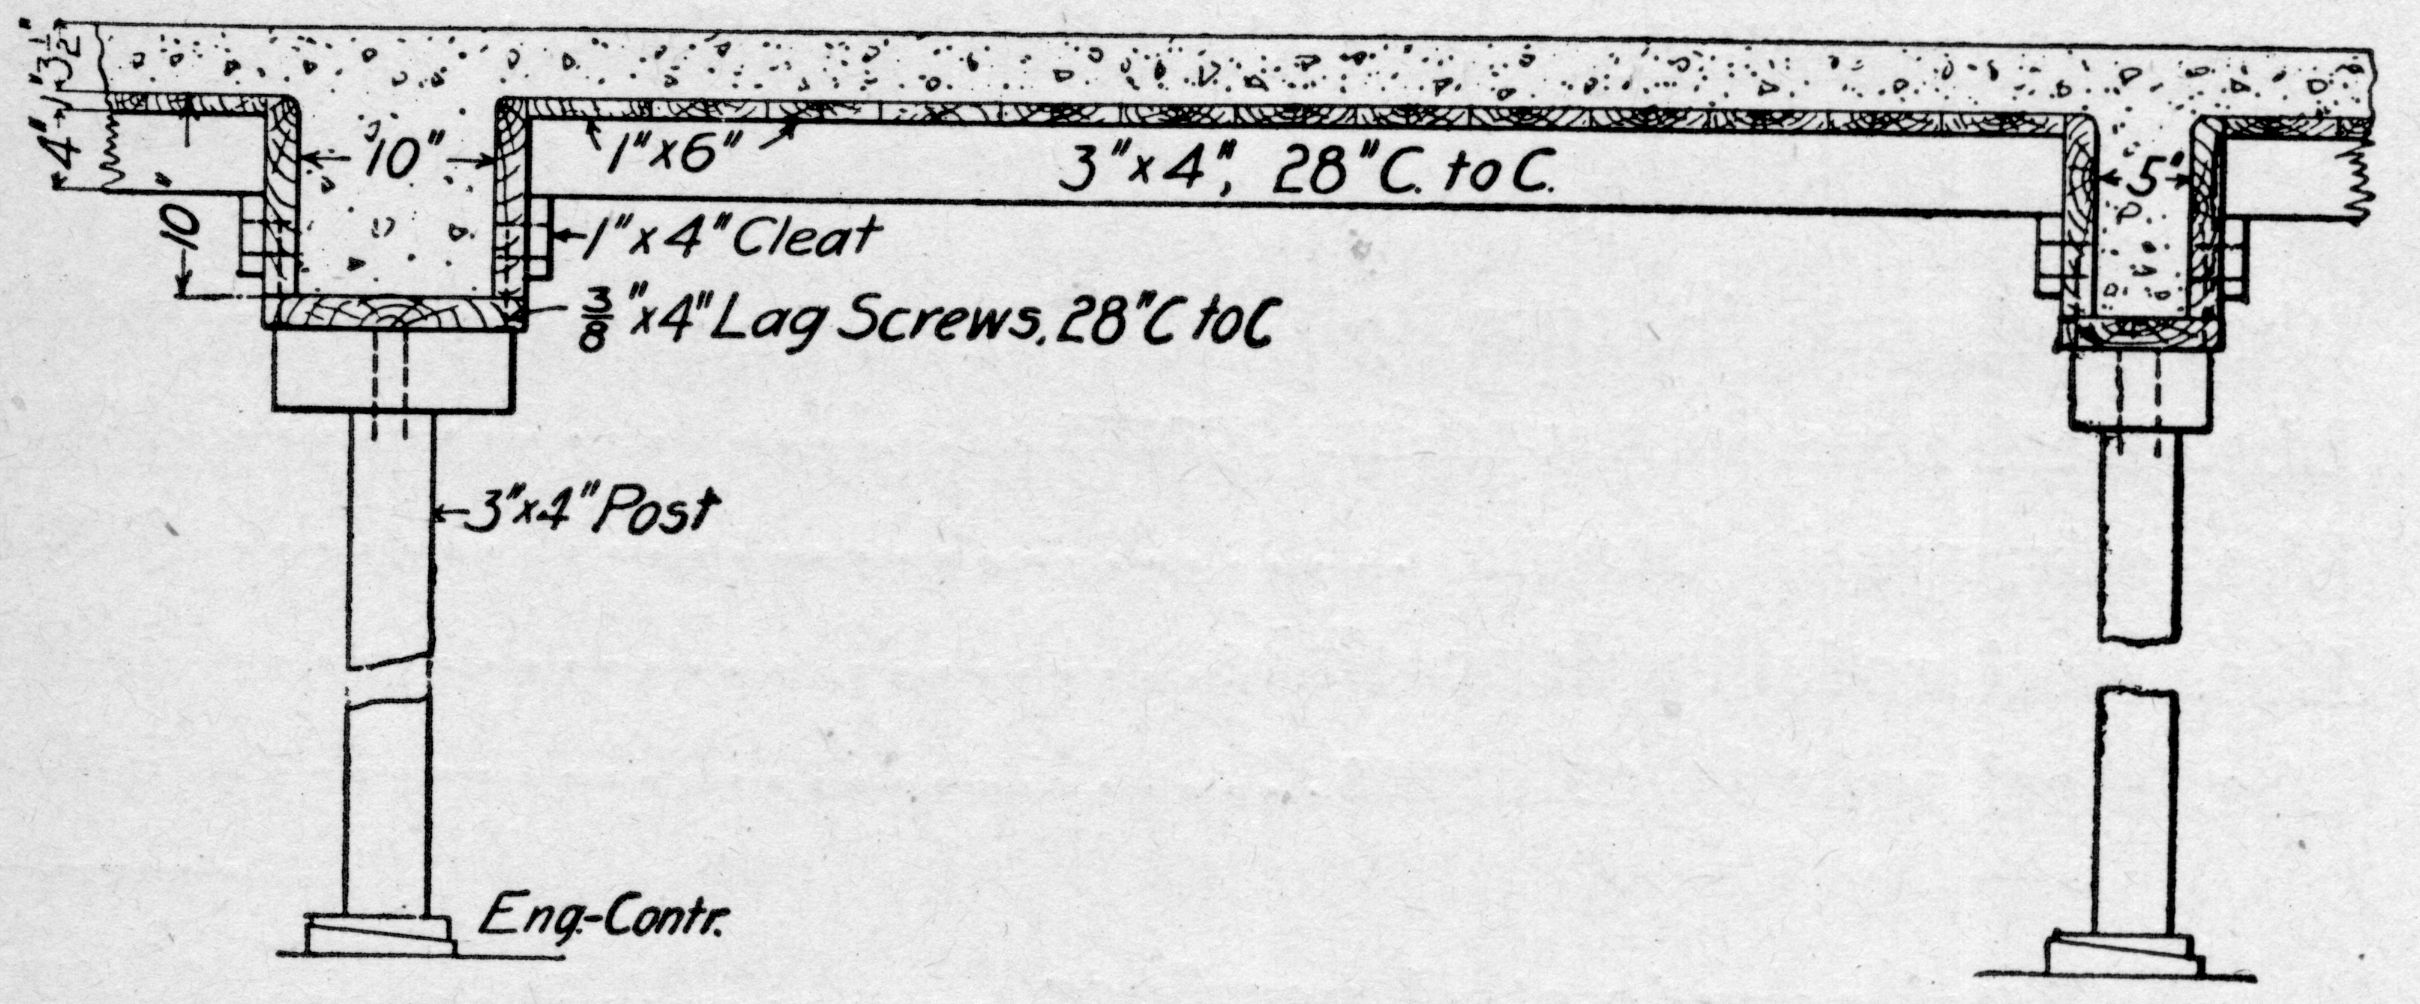 3 1/2"
1"
4"
10"
10"
1"x6"
3"x4", 28"C. to C.
5"
1"x4" Cleat
3/8"x4" Lag Screws, 28"C to C
3"x4" Post
Eng.-Contr.